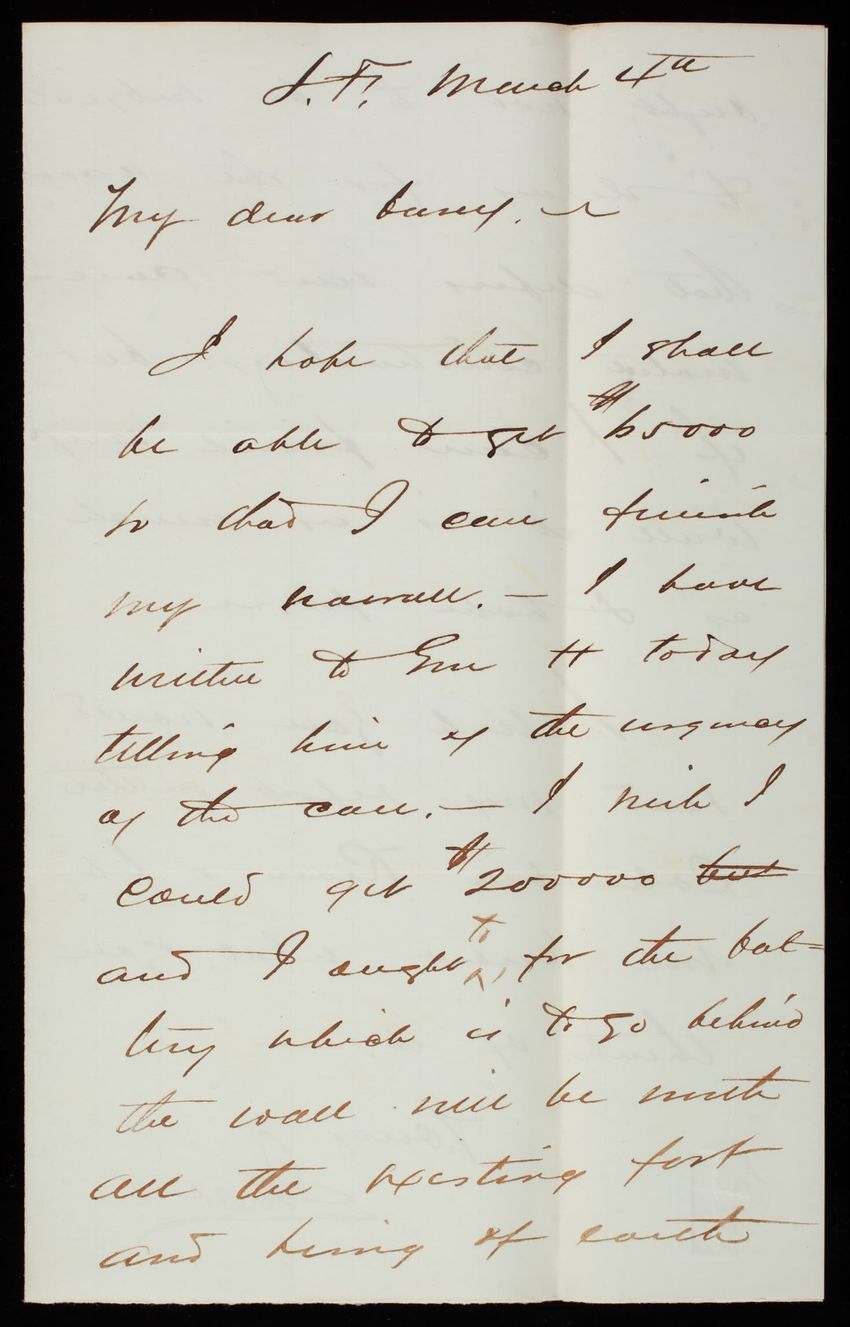 S. F. March 4th
My dear Casey. —
I hope that I shall
be able to get $65000
so that I can finish
my seawall. — I have
written to Gen H today
telling him of the urgency
of the case. — I wish I
could get $200000 but
and I ought to, for the bat=
tery which is to go behind
the wall will be worth
all the existing fort
and being of earth